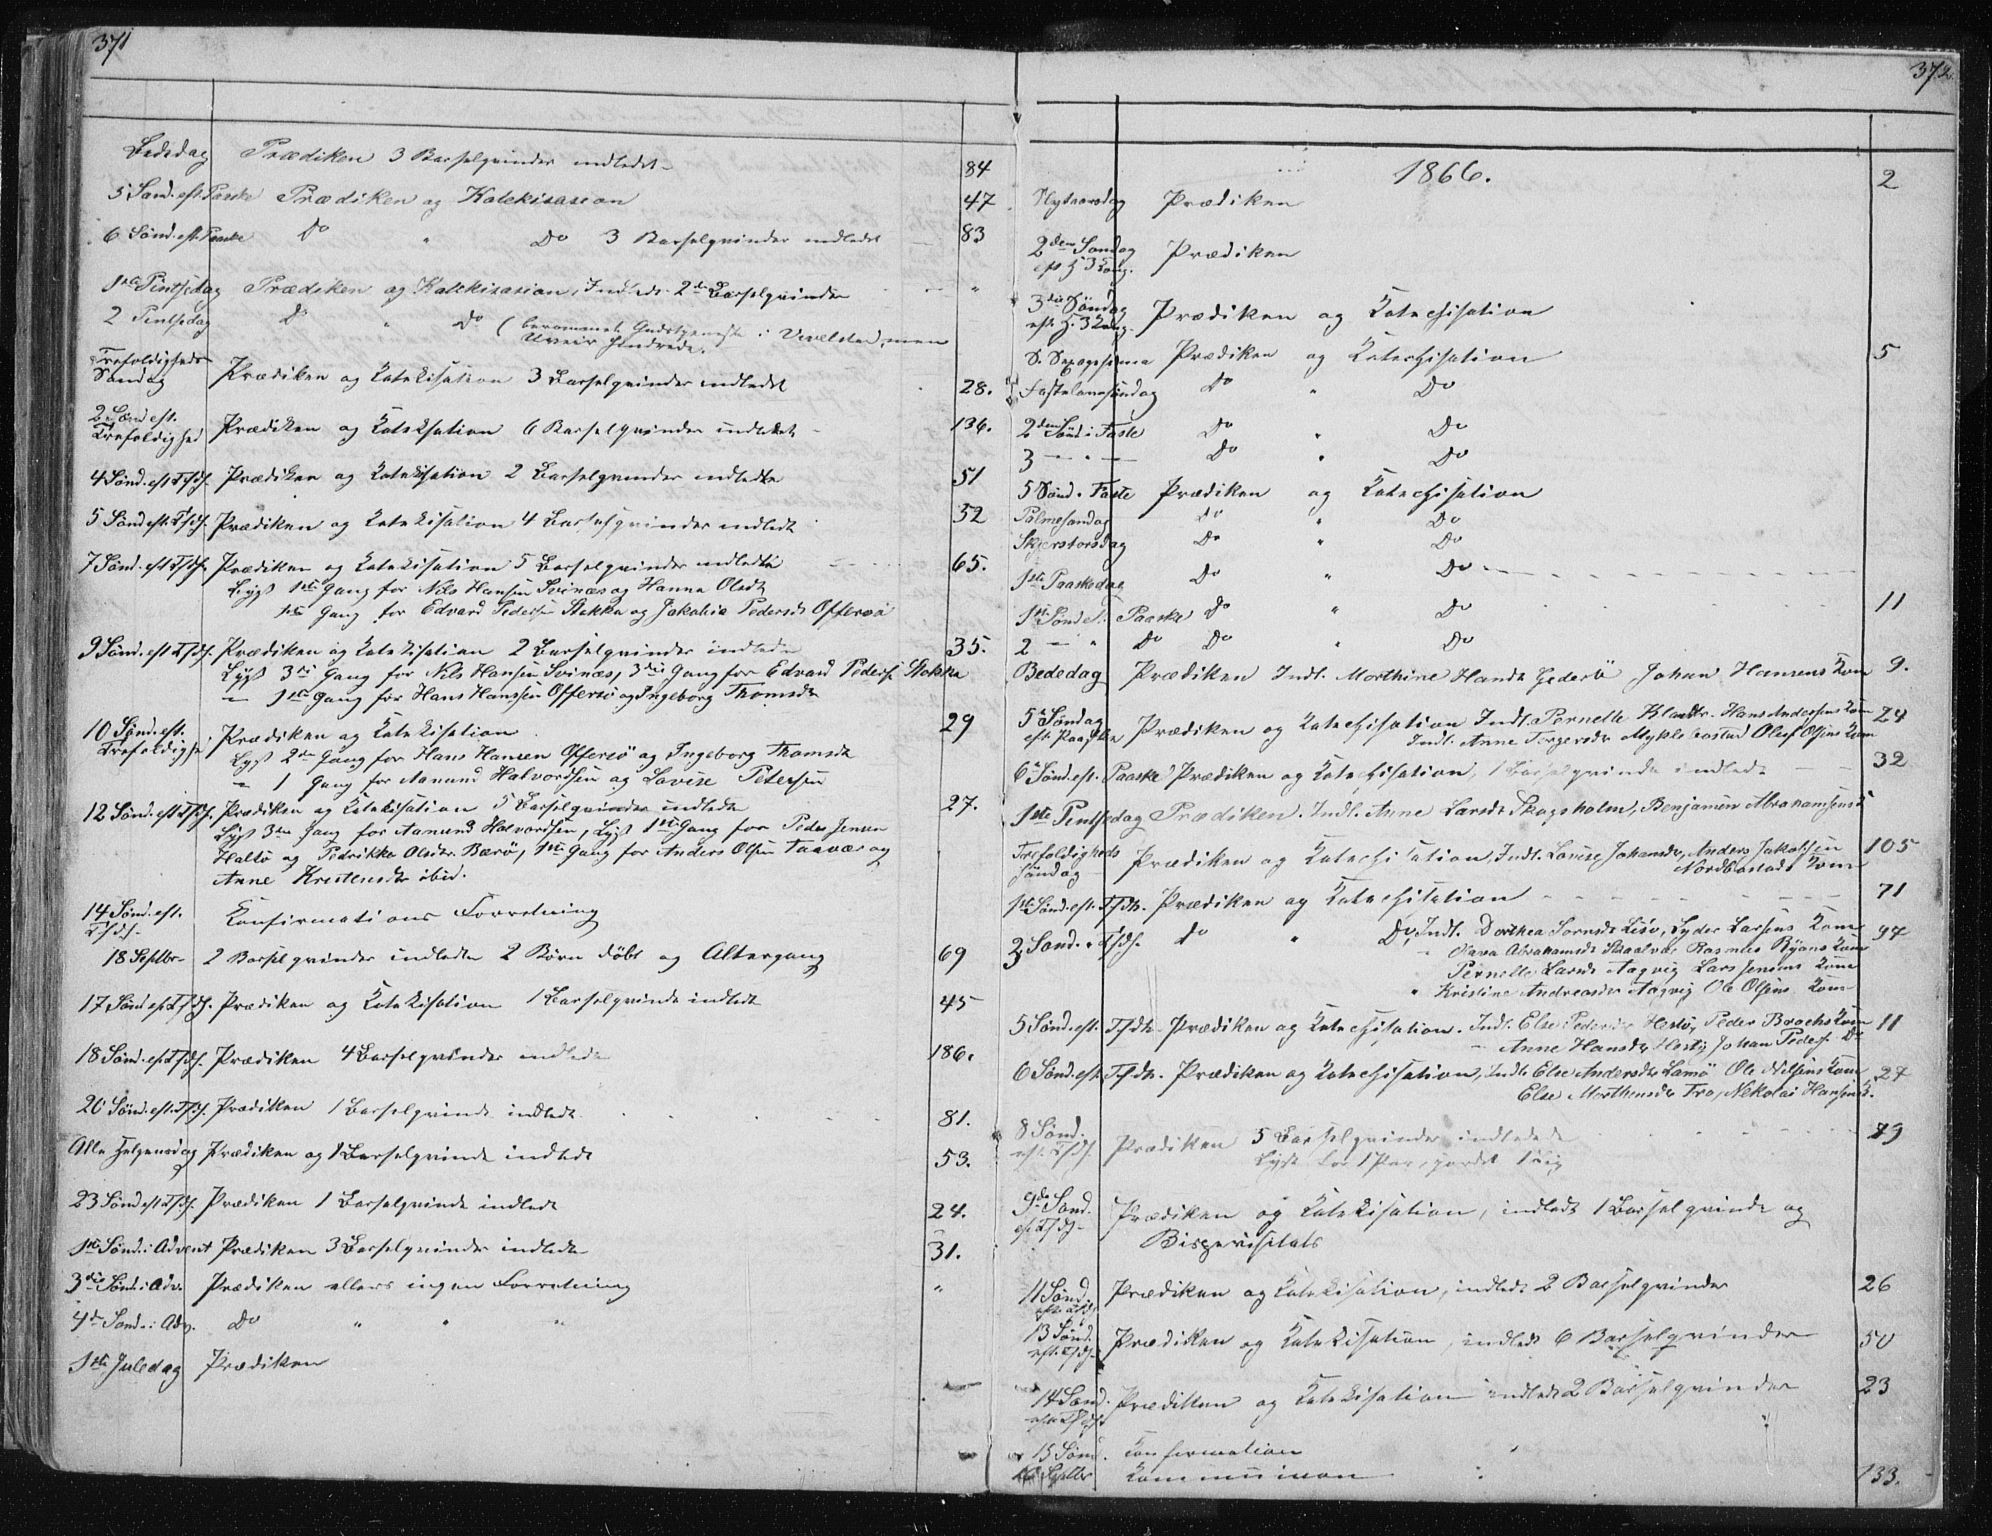 371
Bededag Prædiken 3 Barselqvinder indledet 84
5 Sønd. eft. Paaske Prædiken og Katekisasion 47
6 Sønd. eft. Paaske Do " Do 3 Barselqvinder indledet 83
1ste Pintsedag Prædiken og Katekisasion, Indledt 2de Barselqvinder "
2 Pintsedag Do " Do (berammet Gudstjeneste i Vevelstad, men
Uveir hindrede.
Trefoldigheds
Søndag Prædiken og Katekisation 3 Barselqvinder indledet 28.
2 Sønd. eft.
Trefoldighed Prædiken og Katekisation 6 Barselqvinder indledet 136.
4 Sønd. eft. Tfdh. Prædiken og Katekisation 2 Barselqvinder indledte 51
5 Sønd. eft. Tfdh. Prædiken og Katekisation 4 Barselqvinder indledt 32
7 Sønd. eft. Tfdh. Prædiken og Katekisation 5 Barselqvinder indledte 65.
Lyst 1ste Gang for Nils Hansen Svinæs og Hanna Olsdt
1ste Gang for Edvard Pedersen Stokka og Jakobia Pedersdt Offersø
9 Sønd. eft. Tfdh. Prædiken og Katekisation 2 Barselqvinder indledte 35.
Lyst 3die Gang for Nils Hansen Svinæs, 3die Gang for Edvard Peders. Stokka
— 1ste Gang for Hans Hanssen Offersø og Ingeborg Thomsdt
10 Sønd. eft.
Trefoldighed Prædiken og Katekisation 29
Lyst 2den Gang for Hans Hansen Offersö og Ingeborg Thomsdt
" 1 Gang for Aanund Halvordsen og Lovise Petersen
12 Sønd. eft. Tfdh. Prædiken og Katekisation 5 Barselqvinder indledte 27.
Lyst 3die Gang for Aanund Halvordsen, Lyst 1ste Gang for Peder Jensen
Haltø og Fredrikke Olsdtr. Bærø, 1ste Gang for Anders Olsen Taavær og
Anne Kristensdtr ibid.
14 Sønd. eft.
Tfdh. Konfirmations Forretning
18 Septbr 2 Barselqvinder indledte 2 Børn døbt og Altergang 69
17 Sønd. eft. Tfdh. Prædiken og Katekisation 1 Barselqvinde indledt 45
18 Sønd. eft. Tfdh. Prædiken 4 Barselqvinder indledte 186.
20 Sønd. eft. Tfdh. Prædiken 1 Barselqvinde indledt 81.
Alle Helgensdag Prædiken og 1 Barselqvinde indledt 53.
23 Sønd. eft. Tfdh. Prædiken 1 Barselqvinde indledt 24.
1ste Sønd. i Advent Prædiken 3 Barselqvinder indledte 31.
3die Sønd. i Adv. Prædiken ellers ingen Forretning "
4de Sønd. i Adv. Do " " "
1ste Juledag Prædiken
372
1866. 2
Nytaarsdag Prædiken
2den Søndag
eft. H. 3 Kong. Prædiken
3die Søndag
eft. H. 3 Kong. Prædiken og Katechisation
S. Sexagesima Prædiken og Katechisation 5
Fastelavnssøndag Do " Do
2den Sønd. i Faste Do " Do
3 — " — Do " Do
5 Sønd. i Faste Prædiken og Katechisation
Palmesøndag Do " Do
Skjærstorsdag Do " Do
1ste Paaskedag Do " Do
1ste Sønd. e. Paaske Do " Do 11
2 — " Do Do " Do
Bededag Prædiken Indl. Morthine Hansdt Gederö Johan Hansens Kone 9.
5te Søndag
eft. Paaske Prædiken og Katechisation Indl. Pernelle Klausdtr. Hans Andersens Kone 24
Indl. Anne Torgersdt Myklebostad Oluf Olsens Kone
6te Sønd. eft. Paaske Prædiken og Katechisation, 1 Barselqvinde indledt 32
1ste Pintsedag Prædiken. Indl. Anne Larsdt Skogsholm, Benjamin Abrahamsens
Trefoldigheds
Søndag Prædiken og Katechisation, Indl. Lovise Johansdt, Anders Jakobsen 105
Nordbostads Kone
1ste Sønd. eft. Tfdh. Prædiken og Katechisation 71
3 Sønd. e. Tfdh. Do " Do, Indl. Dorthea Sørnsdt Lisö, Lyder Larsens Kone 97
" Abrahamsdt Skaalvær Rasmus Kone
Pernelle Larsdt Aagvig Lars Jensens Kone
" Kristine Andreasdt Aagvig Ole Olsens Kone
5 Sønd. eft. Tfdh. Prædiken og Katechisation. Indl. Else Pedersdt Hestø, Peder Brochs Kone 11
— Anne Hansdt Hestø Johan Peders. Do
6 Sønd. eft. Tfdh. Prædiken og Katechisation, Indl. Else Andersdt Lamö Ole Nilsens Kone, 27
Else Morthensdt Tro, Nikolai Hansens K.
8 Sønd.
eft. Tfdh. Prædiken 5 Barselqvinder indledede 79
Lyst for 1 Par, jordet 1 Lig
9de Sønd.
eft. Tfdh. Prædiken og Katekisation, indledt 1 Barselqvinde og
Bispevisitats
11 Sønd.
eft. Tfdh. Prædiken og Katekisation, indledt 2 Barselqvinder 26
13 Sønd.
eft. Tfdh. Prædiken og Katekisation, indledt 6 Barselqvinder 50
14 Sønd.
eft. Tfdh. Prædiken og Katekisation indledt 2 Barselqvinder 23
15 Sønd. Confirmation
Septbr Kommunion 133.